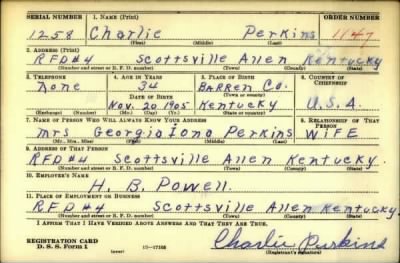 SERIAL NUMBER 1. NAME (Print) ORDER NUMBER
1258 Charlie Perkins 1147
(First) (Middle) (Last)
2. ADDRESS (Print)
RFD#4 Scottsville Allen Kentucky
(Number and street or R. F. D. number) (Town) (County) (State)
3. TELEPHONE 4. AGE IN YEARS 5. PLACE OF BIRTH 6. COUNTRY OF CITIZENSHIP
None 34 Barren Co.
DATE OF BIRTH (Town or county)
Nov. 20 1905 Kentucky U.S.A.
(Exchange) (Number) (Mo.) (Day) (Yr.) (State or country)
7. NAME OF PERSON WHO WILL ALWAYS KNOW YOUR ADDRESS 8. RELATIONSHIP OF THAT PERSON
Mrs Georgia Iona Perkins Wife
(Mr., Mrs., Miss) (First) (Middle) (Last)
9. ADDRESS OF THAT PERSON
RFD#4 Scottsville Allen Kentucky.
(Number and street or R. F. D. number) (Town) (County) (State)
10. EMPLOYER'S NAME
H. B. Powell.
11. PLACE OF EMPLOYMENT OR BUSINESS
RFD#4 Scottsville Allen Kentucky.
(Number and street or R. F. D. number) (Town) (County) (State)
I AFFIRM THAT I HAVE VERIFIED ABOVE ANSWERS AND THAT THEY ARE TRUE.
REGISTRATION CARD
D. S. S. Form 1 (over) Charlie Perkins
(Registrant's signature)